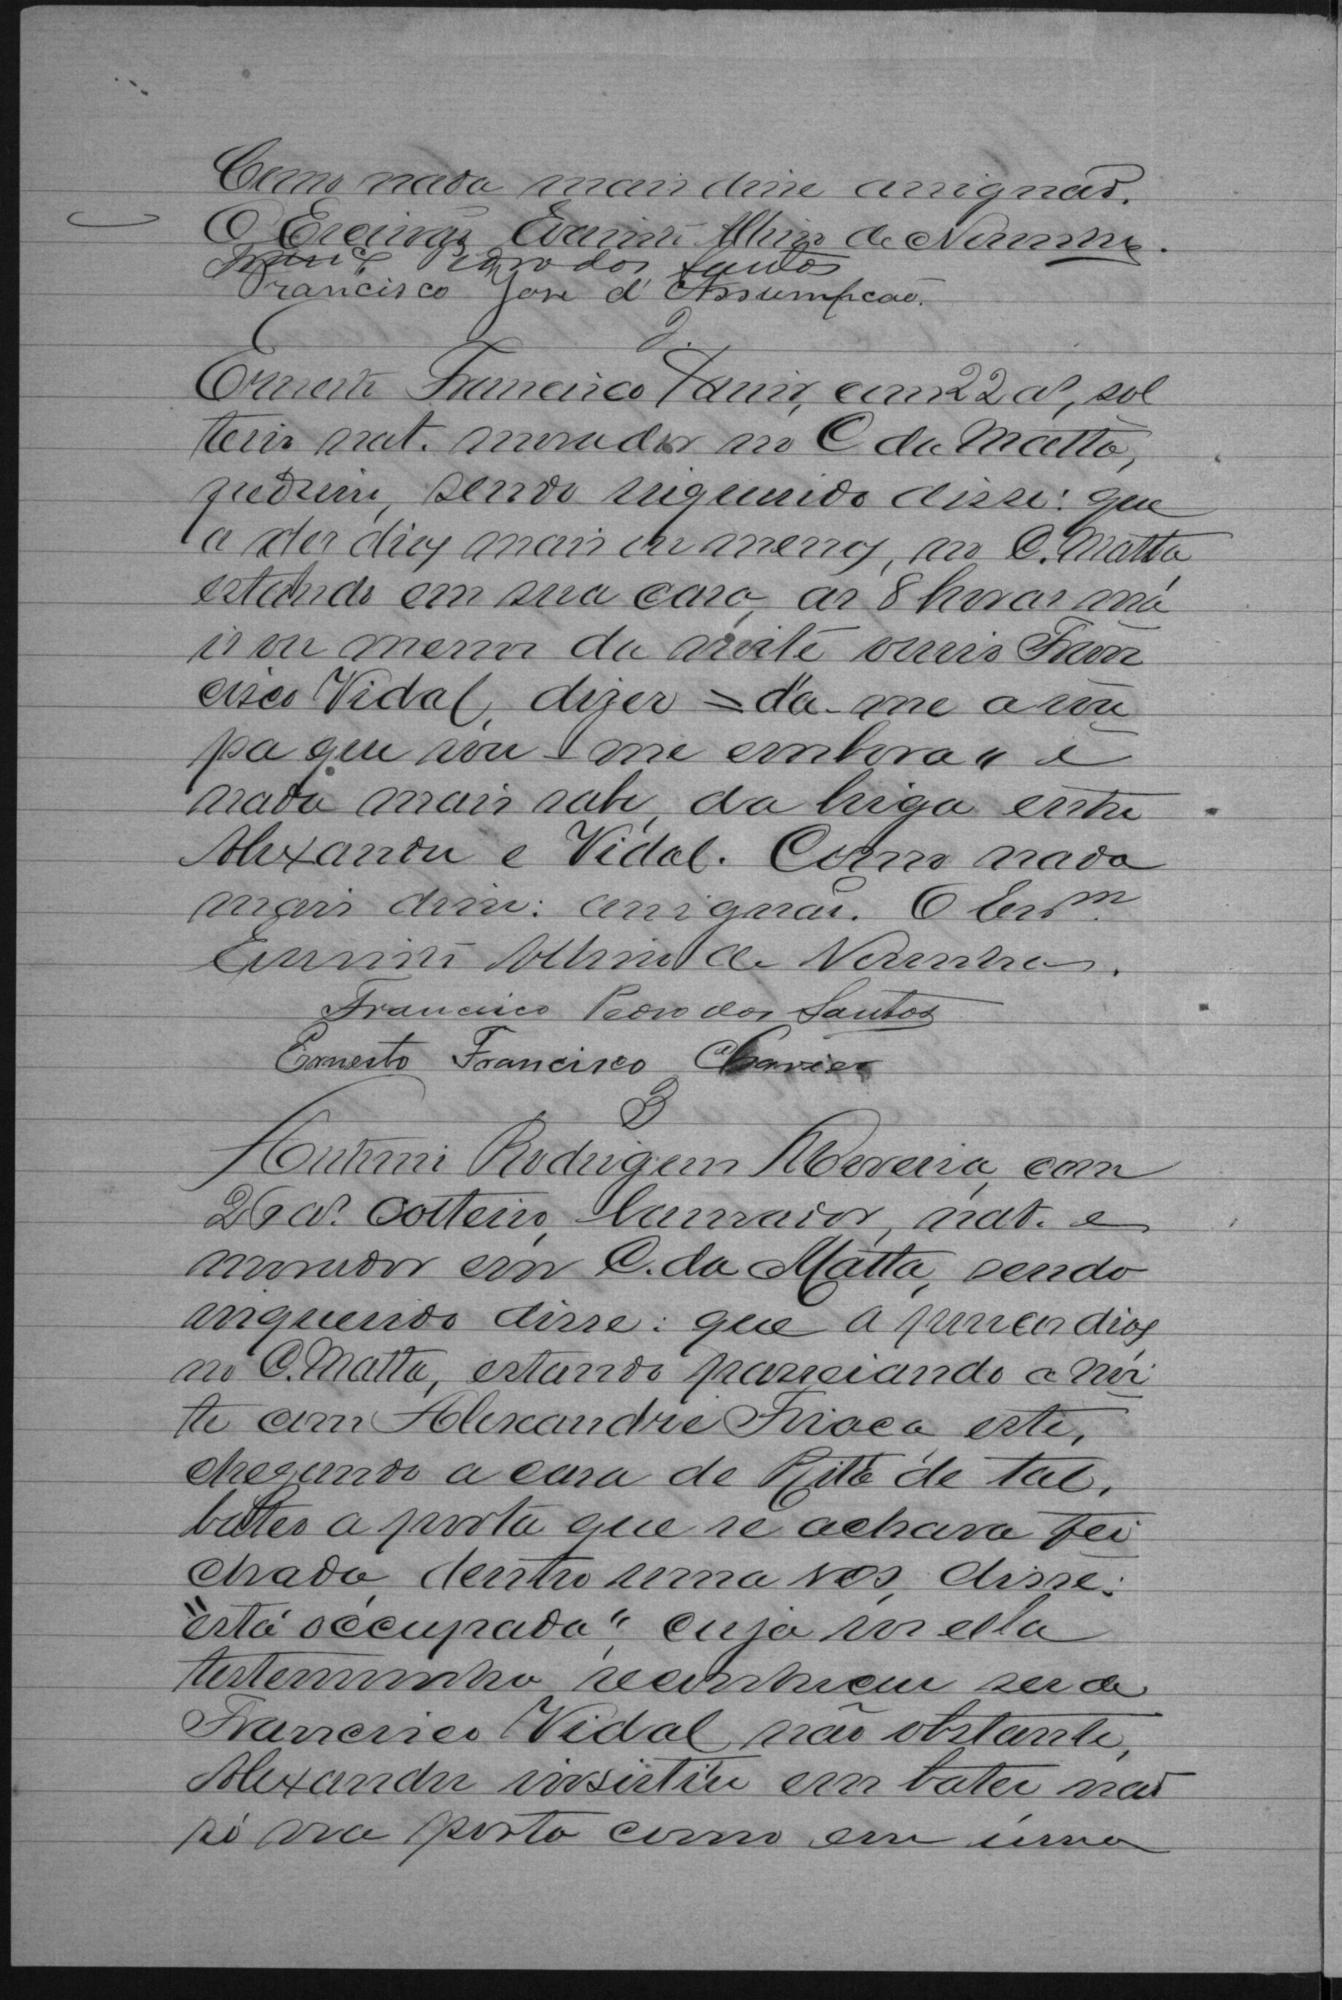 Como nada mais disse assignão.
O Escrivão Evaristo Albino de Noronha.
Franc.co Pedro dos Santos
Francisco Jose d'Assumpcaõ.
2.
Ernesto Francisco Xavier, com 22 as, sol
teiro nat. morador no C da Matta,
pedreiro, sendo inquerido disse: que
a des dias mais ou menos, no C. Matta
estando em sua casa, as 8 horas ma
is ou menos da noite ouvio Fran
cisco Vidal, dizer = da-me a rou
pa que vou-me embora" e
nada mais sabe, da briga entre
Alexandre e Vidal. Como nada
mais disse: assignão. O Escrm
Evaristo Albino de Noronha.
Francisco Pedro dos Santos
Ernesto Francisco Chavier
3
Antonio Rodrigues Moreira, com
26 as. solteiro, lavrador, nat. e
morador em C. da Matta, sendo
inquerido disse: que a poucos dias
no C. Matta, estando passeiando a noi
te com Alexandre este,
chegando a casa de Rita de tal,
bateo a porta que se achava fei
chada, dentro uma vos, disse:
"está occupada", cuja vos ella
testemunha reconheceu ser de
Francisco Vidal não obstante,
Alexandre insistiu em bater não
só na porta como em uma